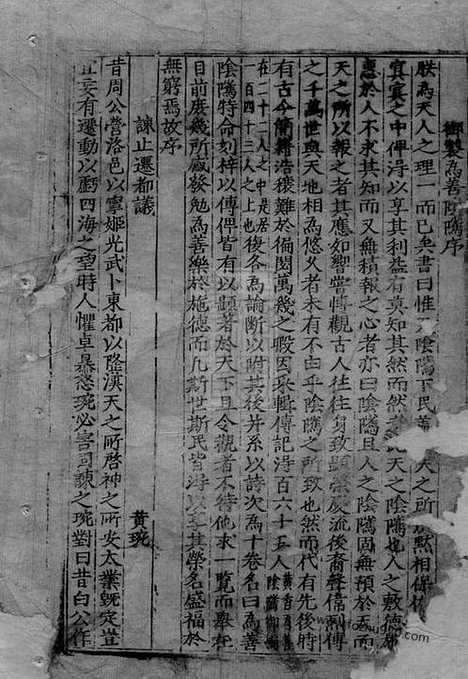 御製為善陰隲序
朕為天人之理一而已矣書曰惟天陰隲下民蓋天之所默相保
冥冥之中俾得以享其利益有莫知其然而然者此天之陰隲也人之敷德
惠於人不求其知而又無積報之心者亦曰陰隲且人之陰隲固無預於天而
天之所以報之者其應如響嘗博觀古人往往身致顯榮慶流後裔聲偉烈傳
之千萬世與天地相為悠久者未有不由乎陰隲之所致也然而代有先後時
有古今簡籍浩穰難於徧閱萬幾之暇因采輯傳記得百六十五人
在二十二人之中是居
一百四十三人之上也後各為論斷以附其後并系以詩次為十卷名曰為善
陰隲特命刻梓以傳俾皆有以顯著於天下且令觀者不待他求一覽而舉在
目前庶幾所感發勉為善樂於施德而凡斯世斯民皆得以享其榮名盛福於
無窮焉故序
諫止遷都議 黃琬
昔周公營洛邑以寧姬光武卜東都以隆漢天之所啓神之所安大業既定豈
宜妄有遷動以虧四海之望時人懼卓暴怒琬必害固諫之琬對曰昔白公作